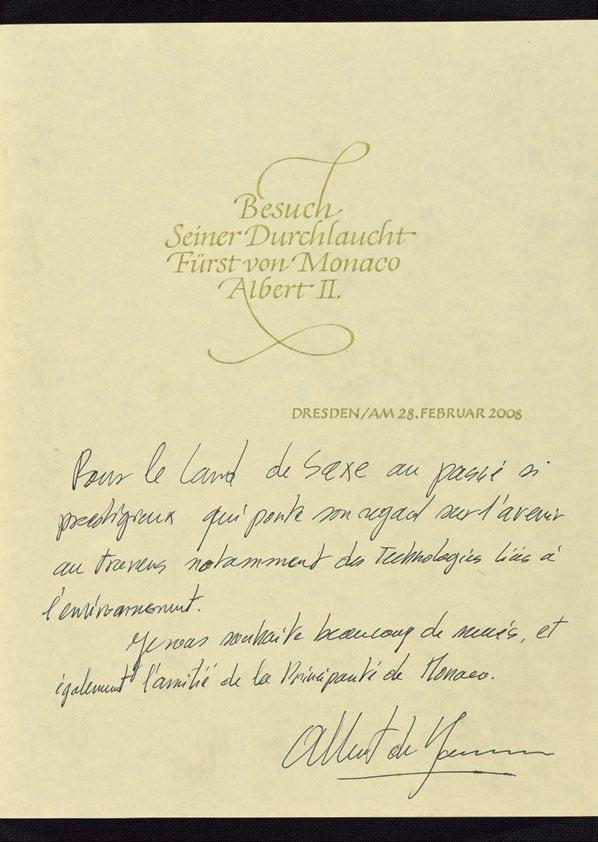 Besuch
Seiner Durchlaucht
Fürst von Monaco
Albert II.
DRESDEN/AM 28. FEBRUAR 2008
Pour le Land de Saxe au passé si
prestigieux qui porte son regard sur l'avenir
au travers notamment des Technologies liées à
l'environnement.
Je vous souhaite beaucoup de succès, et
également l'amitié de la Principauté de Monaco.
Albert de Monaco